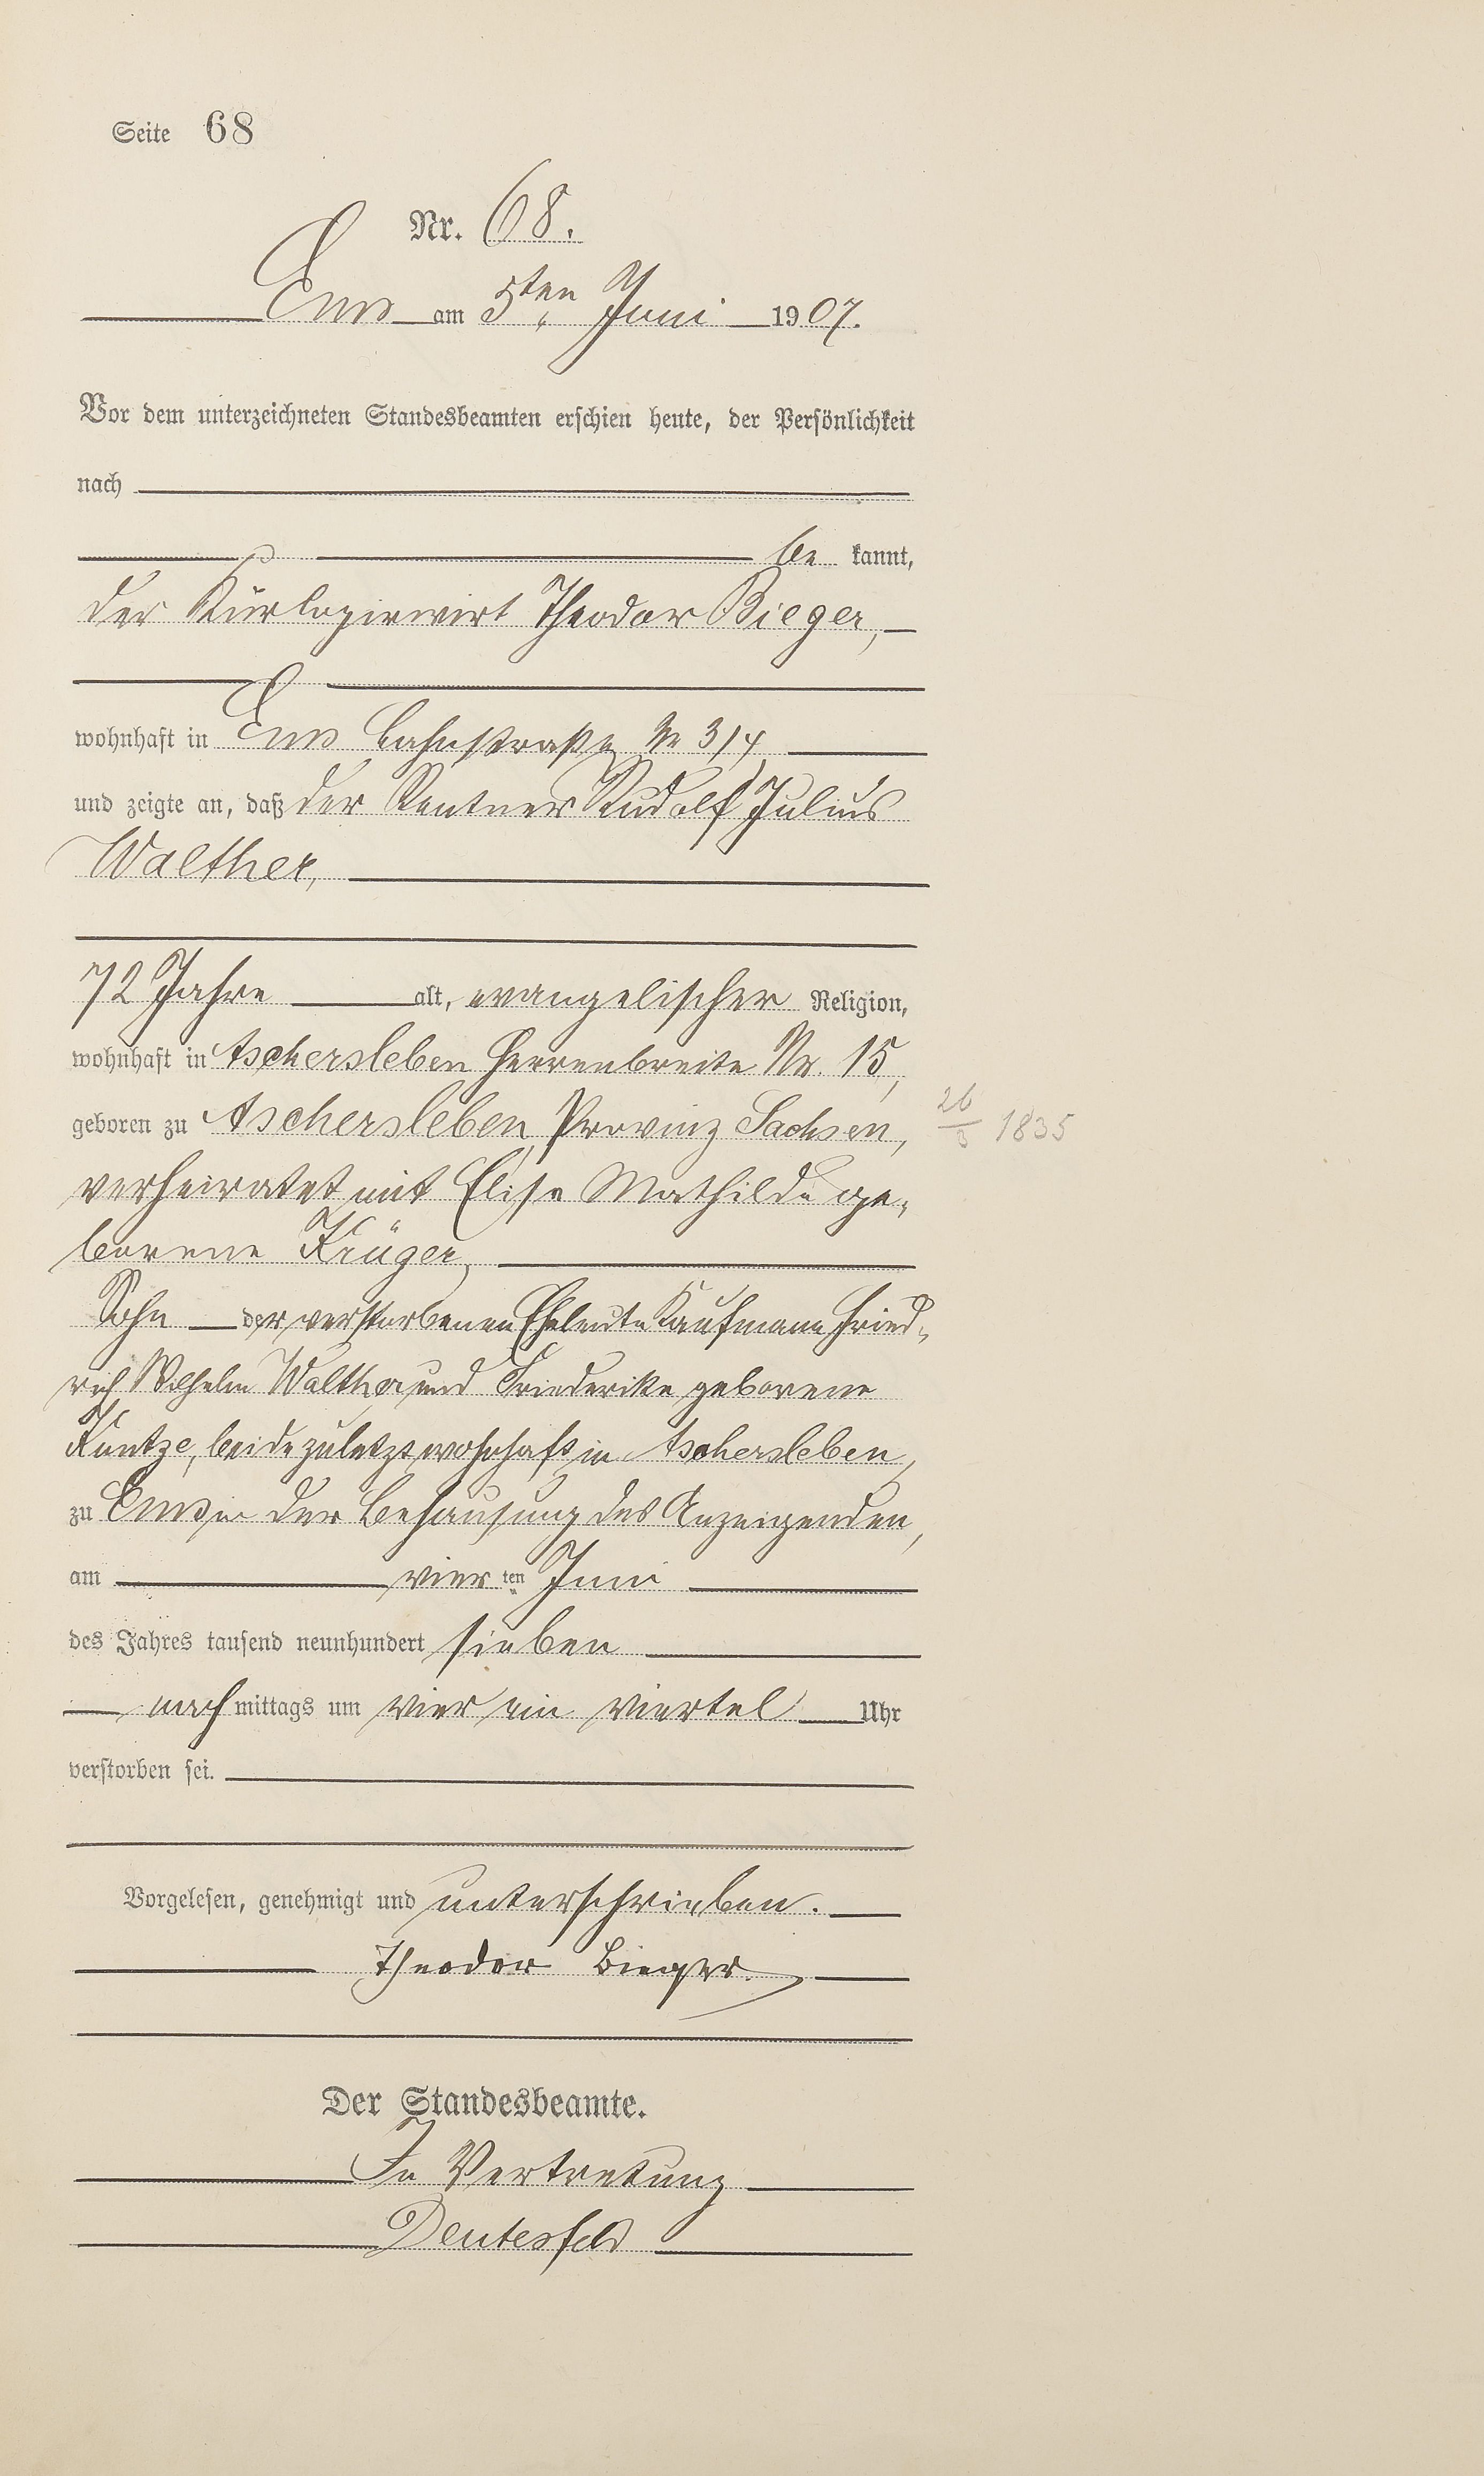 Seite 68
Nr. 68.
Ems am 5ten Juni 1907.
Vor dem unterzeichneten Standesbeamten erschien heute, der Persönlichkeit
nach
be kannt,
der Kurlogirwirt Theodor Bieger,
wohnhaft in Ems Lahnstraße Nr 3/4,
und zeigte an, daß der Rentner Rudolf Julius
Walther,
72 Jahre alt, evangelischer Religion,
wohnhaft in Aschersleben Herrenbreite Nr. 15,
geboren zu Aschersleben, Provinz Sachsen, 26/3 1835
verheiratet mit Elise Mathilde ge-
borene Krüger,
Sohn der verstorbenen Eheleute Kaufmann Fried-
rich Wilhelm Walther und Friederike geborene
Kuntze, beide zuletzt wohnhaft in Aschersleben,
zu Ems in der Behausung des Anzeigenden,
am vier ten Juni
des Jahres tausend neunhundert sieben
nach mittags um vier ein viertel Uhr
verstorben sei.
Vorgelesen, genehmigt und unterschrieben.
Theodor Bieger
Der Standesbeamte.
In Vertretung
Deutesfeld